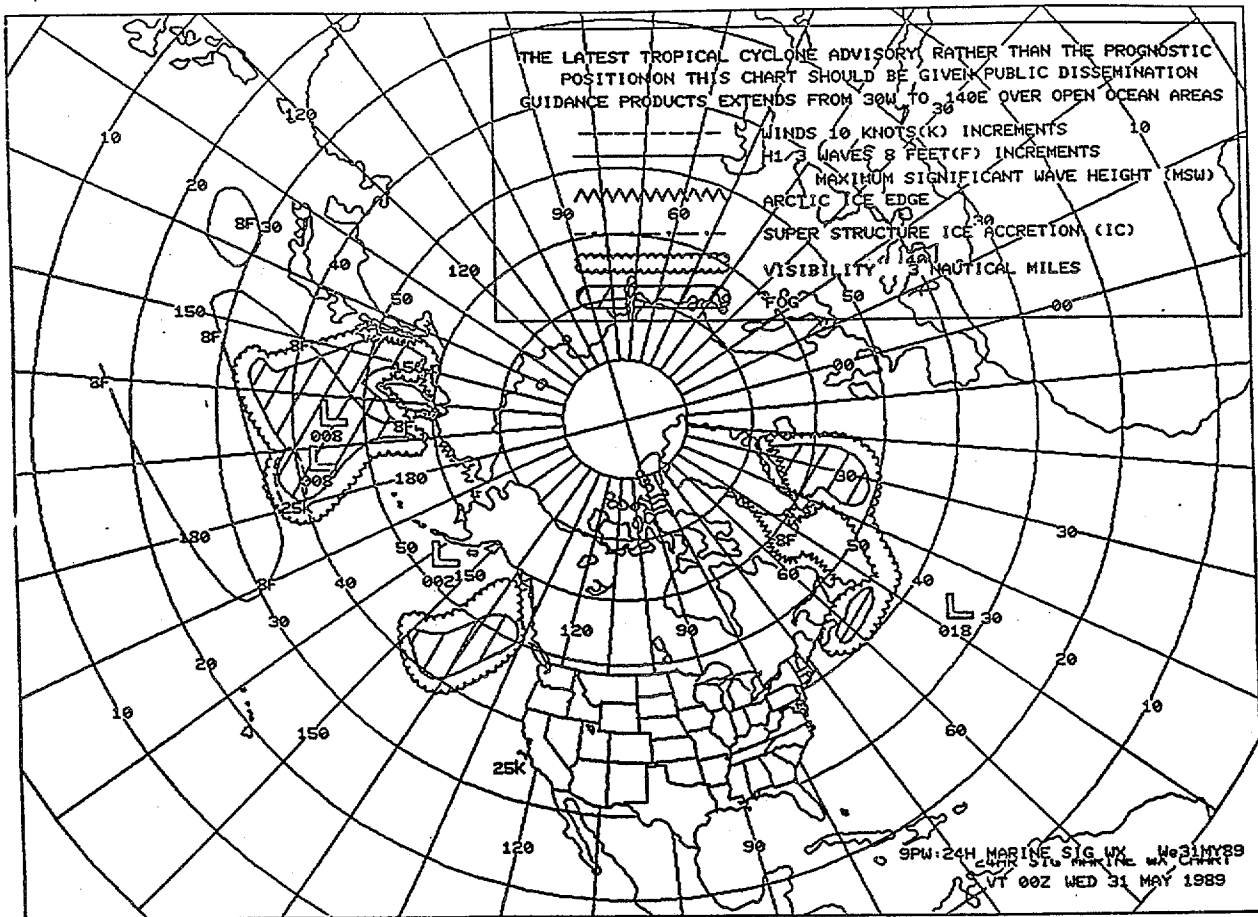 THE LATEST TROPICAL CYCLONE ADVISORY RATHER THAN THE PROGNOSTIC
POSITION ON THIS CHART SHOULD BE GIVEN PUBLIC DISSEMINATION
GUIDANCE PRODUCTS EXTENDS FROM 30W TO 140E OVER OPEN OCEAN AREAS
120
30
10
WINDS 10 KNOTS(K) INCREMENTS
10
H1/3 WAVES 8 FEET(F) INCREMENTS
MAXIMUM SIGNIFICANT WAVE HEIGHT (MSW)
20
ARCTIC ICE EDGE
90
60
30
8F
30
SUPER STRUCTURE ICE ACCRETION (IC)
40
120
VISIBILITY
3 NAUTICAL MILES
50
FOG
50
00
150
8F
8F
150
00
8F
L
008
8F
L
008
180
30
25K
180
50
8F
50
30
L
002
150
60
40
8F
40
L
018
30
30
120
90
20
20
10
150
60
10
25K
120
90
9PW:24H MARINE SIG WX We31MY89
24HR SIG MARINE WX CHART
VT 00Z WED 31 MAY 1989